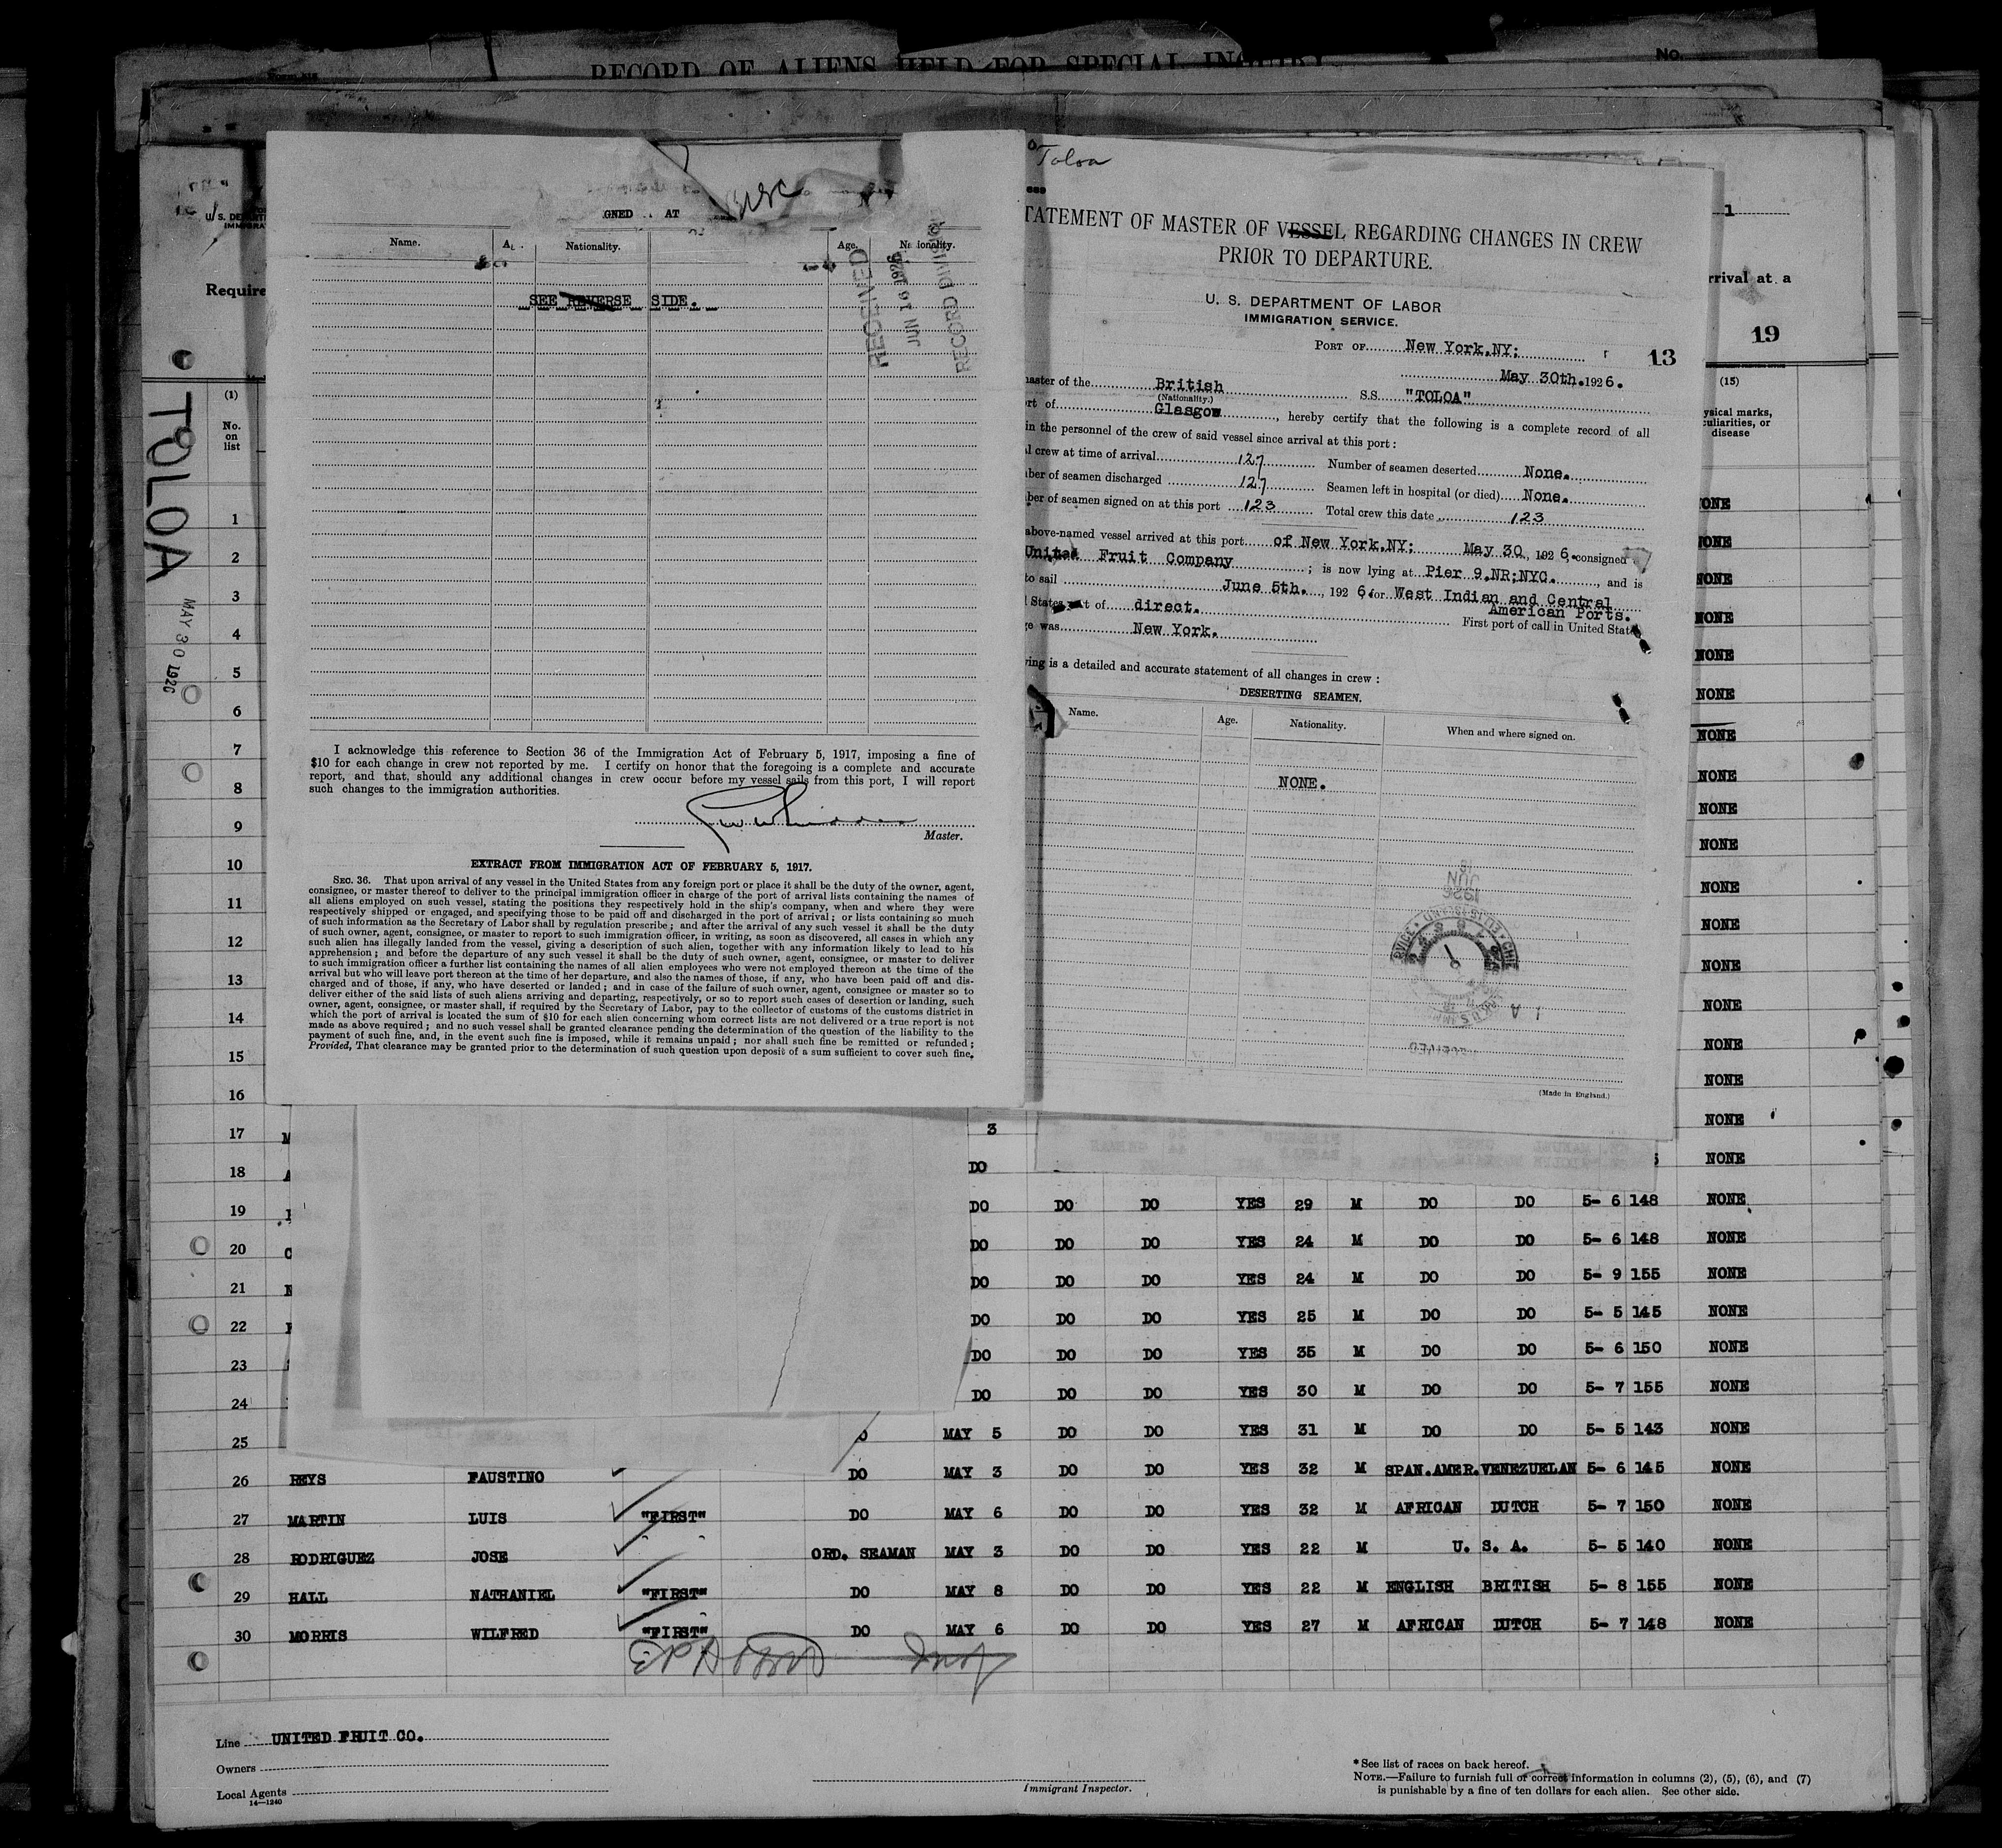 RECORD OF ALIENS HELD FOR SPECIAL INQUIRY
No.
GNED AT
Name.
Nationality.
Age.
Nationality.
SEE REVERSE SIDE.
RECEIVED
JUN 19 1926
RECORD DIVISION
I acknowledge this reference to Section 36 of the Immigration Act of February 5, 1917, imposing a fine of
$10 for each change in crew not reported by me. I certify on honor that the foregoing is a complete and accurate
report, and that, should any additional changes in crew occur before my vessel sails from this port, I will report
such changes to the immigration authorities.
Master.
EXTRACT FROM IMMIGRATION ACT OF FEBRUARY 5, 1917.
SEC. 36. That upon arrival of any vessel in the United States from any foreign port or place it shall be the duty of the owner, agent,
consignee, or master thereof to deliver to the principal immigration officer in charge of the port of arrival lists containing the names of
all aliens employed on such vessel, stating the positions they respectively hold in the ship's company, when and where they were
respectively shipped or engaged, and specifying those to be paid off and discharged in the port of arrival; or lists containing so much
of such information as the Secretary of Labor shall by regulation prescribe; and after the arrival of any such vessel it shall be the duty
of such owner, agent, consignee, or master to report to such immigration officer, in writing, as soon as discovered, all cases in which any
such alien has illegally landed from the vessel, giving a description of such alien, together with any information likely to lead to his
apprehension; and before the departure of any such vessel it shall be the duty of such owner, agent, consignee, or master to deliver
to such immigration officer a further list containing the names of all alien employees who were not employed thereon at the time of the
arrival but who will leave port thereon at the time of her departure, and also the names of those, if any, who have been paid off and dis-
charged and of those, if any, who have deserted or landed; and in case of the failure of such owner, agent, consignee or master so to
deliver either of the said lists of such aliens arriving and departing, respectively, or so to report such cases of desertion or landing, such
owner, agent, consignee, or master shall, if required by the Secretary of Labor, pay to the collector of customs of the customs district in
which the port of arrival is located the sum of $10 for each alien concerning whom correct lists are not delivered or a true report is not
made as above required; and no such vessel shall be granted clearance pending the determination of the question of the liability to the
payment of such fine, and, in the event such fine is imposed, while it remains unpaid; nor shall such fine be remitted or refunded;
Provided, That clearance may be granted prior to the determination of such question upon deposit of a sum sufficient to cover such fine.
Toloa
TATEMENT OF MASTER OF VESSEL REGARDING CHANGES IN CREW
PRIOR TO DEPARTURE.
U. S. DEPARTMENT OF LABOR
IMMIGRATION SERVICE.
PORT OF New York,NY;
13
May 30th. 1926.
aster of the British S.S. "TOLOA"
(Nationality.)
rt of Glasgow, hereby certify that the following is a complete record of all
in the personnel of the crew of said vessel since arrival at this port:
l crew at time of arrival 127 Number of seamen deserted None.
ber of seamen discharged 127 Seamen left in hospital (or died) None.
ber of seamen signed on at this port 123 Total crew this date 123
above-named vessel arrived at this port of New York,NY; May 30, 1926. consigned
United Fruit Company; is now lying at Pier 9.NR;NYC., and is
to sail June 5th., 1926, for West Indian and Central
American Ports.
States port of direct. First port of call in United States
ge was New York.
ing is a detailed and accurate statement of all changes in crew:
DESERTING SEAMEN.
Name. Age. Nationality. When and where signed on.
NONE.
(Made in England.)
U. S. DE
IMMIGRA
Require
rrival at a
1
19
TOLOA
MAY 30 1926
(1)
No.
on
list
(15)
ysical marks,
culiarities, or
disease
1 NONE
2 NONE
3 NONE
4 NONE
5 NONE
6 NONE
7 NONE
8 NONE
9 NONE
10 NONE
11 NONE
12 NONE
13 NONE
14 NONE
15 NONE
16 NONE
17 3 NONE
18 DO NONE
19 DO DO DO YES 29 M DO DO 5- 6 148 NONE
20 DO DO DO YES 24 M DO DO 5- 6 148 NONE
21 DO DO DO YES 24 M DO DO 5- 9 155 NONE
22 DO DO DO YES 25 M DO DO 5- 5 145 NONE
23 DO DO DO YES 35 M DO DO 5- 6 150 NONE
24 DO DO DO YES 30 M DO DO 5- 7 155 NONE
25 MAY 5 DO DO YES 31 M DO DO 5- 5 143 NONE
26 REYS FAUSTINO DO MAY 3 DO DO YES 32 M SPAN.AMER. VENEZUELAN 5- 6 145 NONE
27 MARTIN LUIS "FIRST" DO MAY 6 DO DO YES 32 M AFRICAN DUTCH 5- 7 150 NONE
28 RODRIGUEZ JOSE ORD. SEAMAN MAY 3 DO DO YES 22 M U. S. A. 5- 5 140 NONE
29 HALL NATHANIEL "FIRST" DO MAY 8 DO DO YES 22 M ENGLISH BRITISH 5- 8 155 NONE
30 MORRIS WILFRED "FIRST" DO MAY 6 DO DO YES 27 M AFRICAN DUTCH 5- 7 148 NONE
Line UNITED FRUIT CO.
Owners
Local Agents
14—1240
Immigrant Inspector.
* See list of races on back hereof.
NOTE.—Failure to furnish full or correct information in columns (2), (5), (6), and (7)
is punishable by a fine of ten dollars for each alien. See other side.